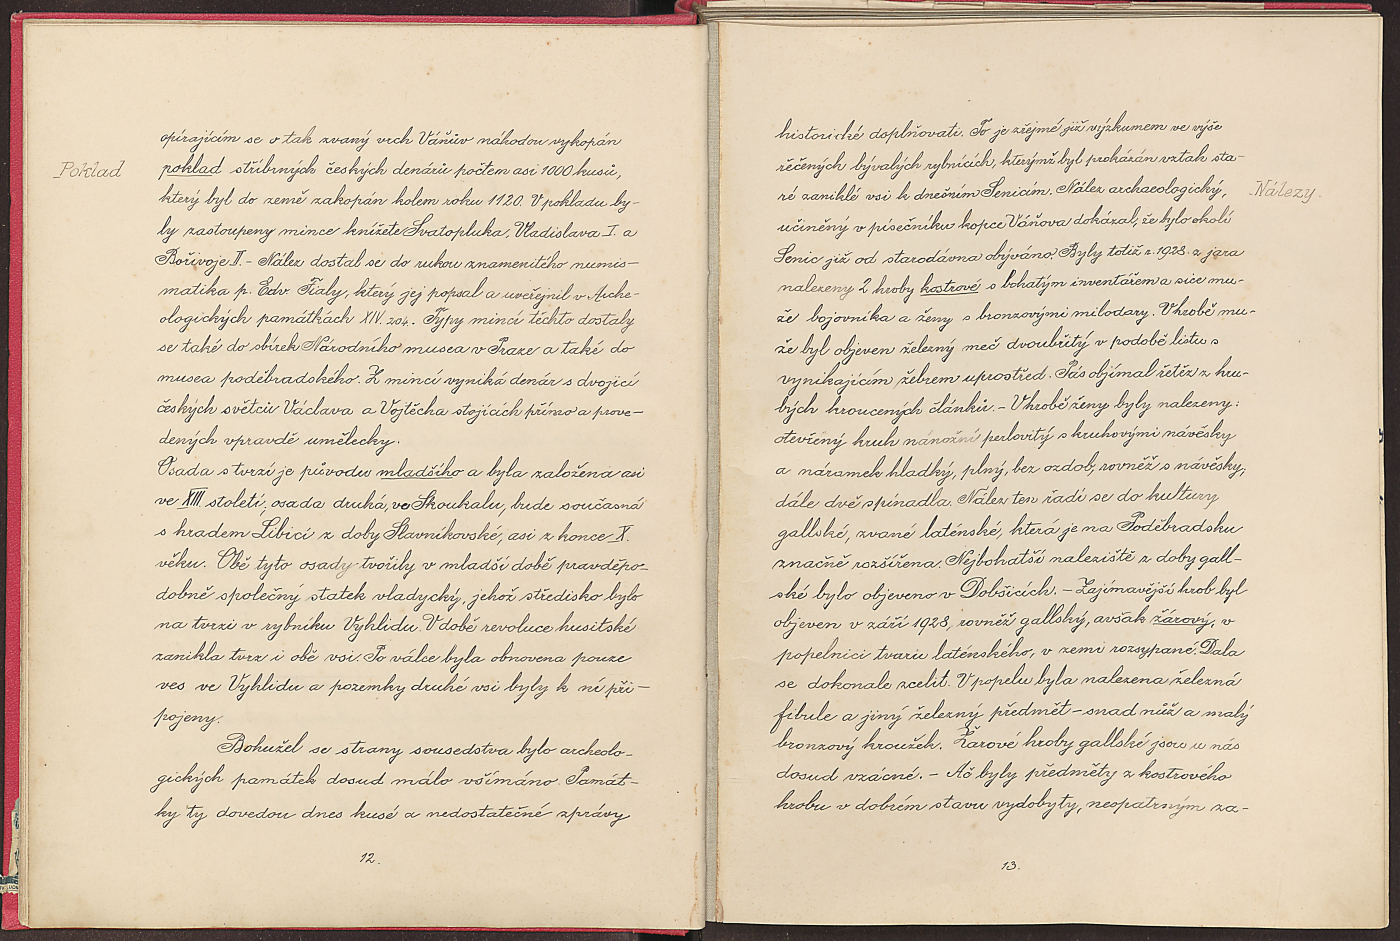 Poklad
opírajícím se o tak zvaný vrch Váňův náhodou vykopán
poklad stříbrných českých denárů počtem asi 1000 kusů,
který byl do země zakopán kolem roku 1120. V pokladu by-
ly zastoupeny mince knížete Svatopluka, Vladislava I. a
Bořivoje II. – Nález dostal se do rukou znamenitého numis-
matika p. Edv. Fialy, který jej popsal a uveřejnil v Arche-
ologických památkách XIV. 204. Typy mincí těchto dostaly
se také do sbírek Národního musea v Praze a také do
musea poděbradského. Z mincí vyniká denár s dvojicí
českých světců Václava a Vojtěcha stojících přímo a prove-
dených vpravdě umělecky.
Osada s tvrzí je původu mladšího a byla založena asi
ve XIII. století, osada druhá, ve Skoukalu, bude současná
s hradem Libicí z doby Slavníkovské, asi z konce X.
věku. Obě tyto osady tvořily v mladší době pravděpo-
dobně společný statek vladycký, jehož středisko bylo
na tvrzi v rybníku Vyhlidu. V době revoluce husitské
zanikla tvrz i obě vsi. Po válce byla obnovena pouze
ves ve Vyhlidu a pozemky druhé vsi byly k ní při-
pojeny.
Bohužel se strany sousedstva bylo archeolo-
gických památek dosud málo všímáno. Památ-
ky ty dovedou dnes kusé a nedostatečné zprávy
12.
historické doplňovati. To je zřejmé již výzkumem ve výše
řečených bývalých rybnících, kterýmž byl prokázán vztah sta-
ré zaniklé vsi k dnešním Senicím. Nález archaeologický,
Nálezy.
učiněný v písečníku kopce Váňova dokázal, že bylo okolí
Senic již od starodávna obýváno. Byly totiž r. 1928 z jara
nalezeny 2 hroby kostrové s bohatým inventářem a sice mu-
že bojovníka a ženy s bronzovými milodary. V hrobě mu-
že byl objeven železný meč dvoubřitý v podobě listu s
vynikajícím žebrem uprostřed. Pás objímal řetěz z hru-
bých kroucených článků. – V hrobě ženy byly nalezeny:
otevřený kruh nánožní perlovitý s kruhovými návěsky
a náramek hladký, plný, bez ozdob, rovněž s návěsky,
dále dvě spínadla. Nález ten řadí se do kultury
gallské, zvané laténské, která je na Poděbradsku
značně rozšířena. Nejbohatší naleziště z doby gall-
ské bylo objeveno v Dobšicích. – Zajímavější hrob byl
objeven v září 1928, rovněž gallský, avšak žárový, v
popelnici tvaru laténského, v zemi rozsypané. Dala
se dokonale zcelit. V popelu byla nalezena železná
fibule a jiný železný předmět – snad nůž a malý
bronzový kroužek. Žárové hroby gallské jsou u nás
dosud vzácné. – Ač byly předměty z kostrového
hrobu v dobrém stavu vydobyty, neopatrným za-
13.